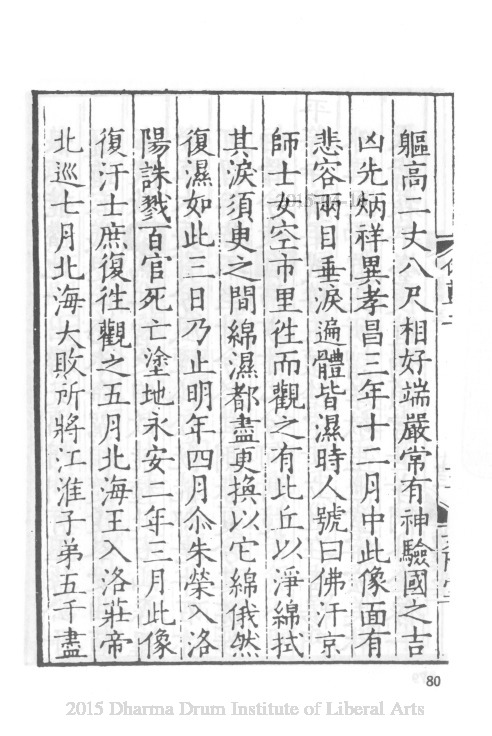 軀高二丈八尺相好端嚴常有神驗國之吉
凶先炳祥異孝昌三年十二月中此像面有
悲容兩目垂淚遍體皆濕時人號曰佛汗京
師士女空市里徃而觀之有比丘以淨綿拭
其淚須臾之間綿濕都盡更換以它綿俄然
復濕如此三日乃止明年四月尒朱榮入洛
陽誅戮百官死亡塗地永安二年三月此像
復汗士庶復徃觀之五月北海王入洛莊帝
北巡七月北海大敗所將江淮子弟五千盡
80
2015 Dharma Drum Institute of Liberal Arts